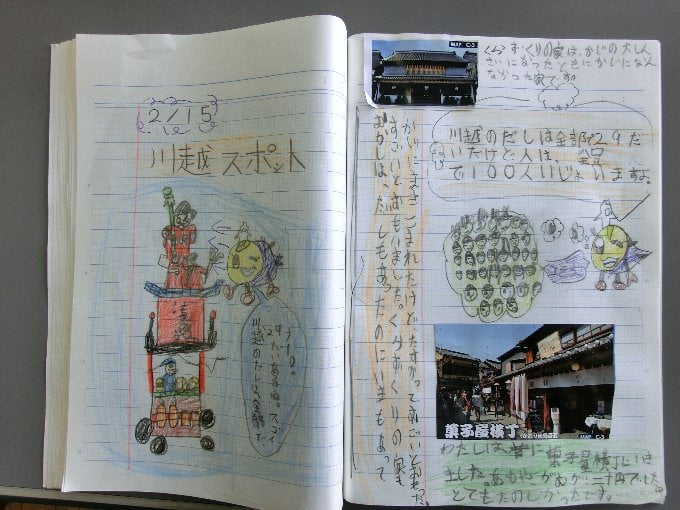 2/15
川越スポット
川越のだしは、全部で
だいあるね。スゴイ
MAP C-3
くらずくりの家は、かじの大しん
さいになったときにかじになん
なかった家です。
川越のだしは全部で29だ
いたけど人は、
で100人いじょいますよ。
むかしは、だしもあったのにいまもあって
すごいとおもいました。くらずくりの家も
かじにまきこまれたけどたすかってすごいとおもった。
菓子屋横丁
MAP C-3
わたしは昔に菓子屋横丁にいき
ました。二十円でした。
とてもたのしかったです。